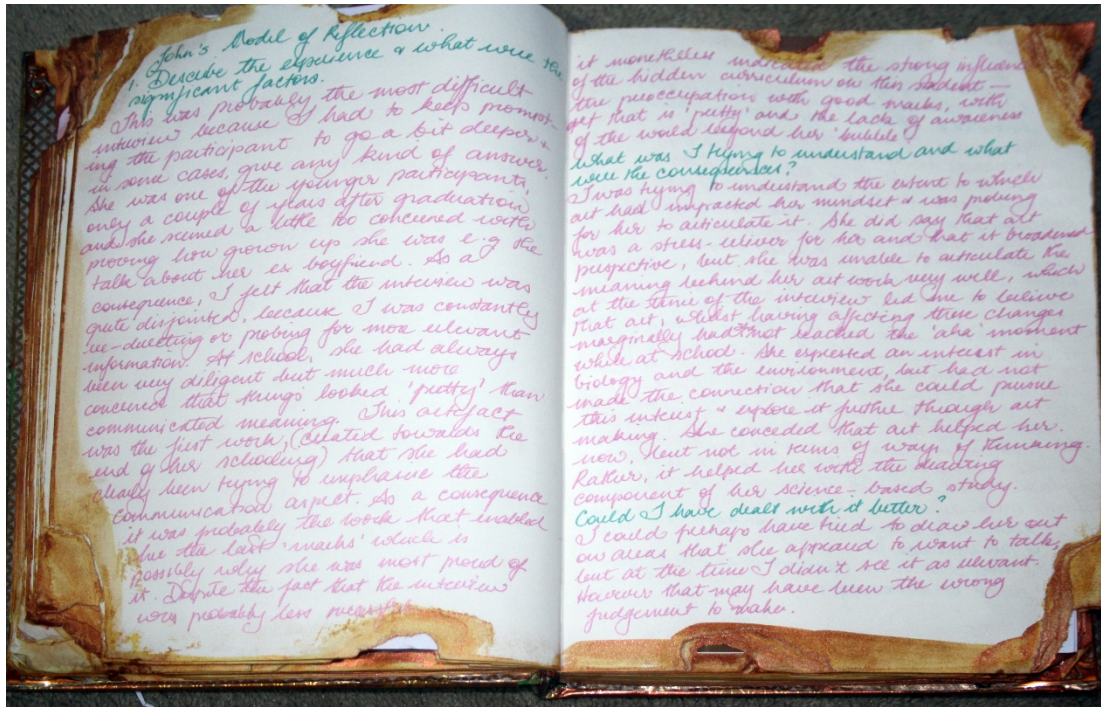 John's Model of Reflection.
1. Describe the experience & what were the
significant factors.
This was probably the most difficult
interview because I had to keep prompt-
ing the participant to go a bit deeper &
in some cases, give any kind of answer.
She was one of the younger participants,
only a couple of years after graduation
and she seemed a little too concerned with
proving how grown up she was e.g the
talk about her ex boyfriend. As a
consequence, I felt that the interview was
quite disjointed, because I was constantly
re-directing or probing for more relevant
information. At school, she had always
been very diligent but much more
concerned that things looked 'pretty' than
communicated meaning. This artefact
was the first work, (created towards the
end of her schooling) that she had
clearly been trying to emphasise the
communication aspect. As a consequence
it was probably the work that enabled
her the best 'marks' which is
possibly why she was most proud of
it. Despite the fact that the interview
was probably less successful
it nonetheless indicated the strong influence
of the hidden curriculum on this student —
the preoccupation with good marks, with
art that is 'pretty' and the lack of awareness
of the world beyond her 'bubble'
What was I trying to understand and what
were the consequences?
I was trying to understand the extent to which
art had impacted her mindset & was probing
for her to articulate it. She did say that art
was a stress-reliever for her and that it broadened
perspective, but she was unable to articulate the
meaning behind her art work very well, which
at the time of the interview led me to believe
that art, whilst having affected these changes
marginally had not reached the 'aha' moment
while at school. She expressed an interest in
biology and the environment, but had not
made the connection that she could pursue
this interest & explore it further through art
making. She conceded that art helped her
now, but not in terms of ways of thinking.
Rather, it helped her with the drawing
component of her science-based study.
Could I have dealt with it better?
I could perhaps have tried to draw her out
on areas that she appeared to want to talk,
but at the time I didn't see it as relevant.
However that may have been the wrong
judgement to make.